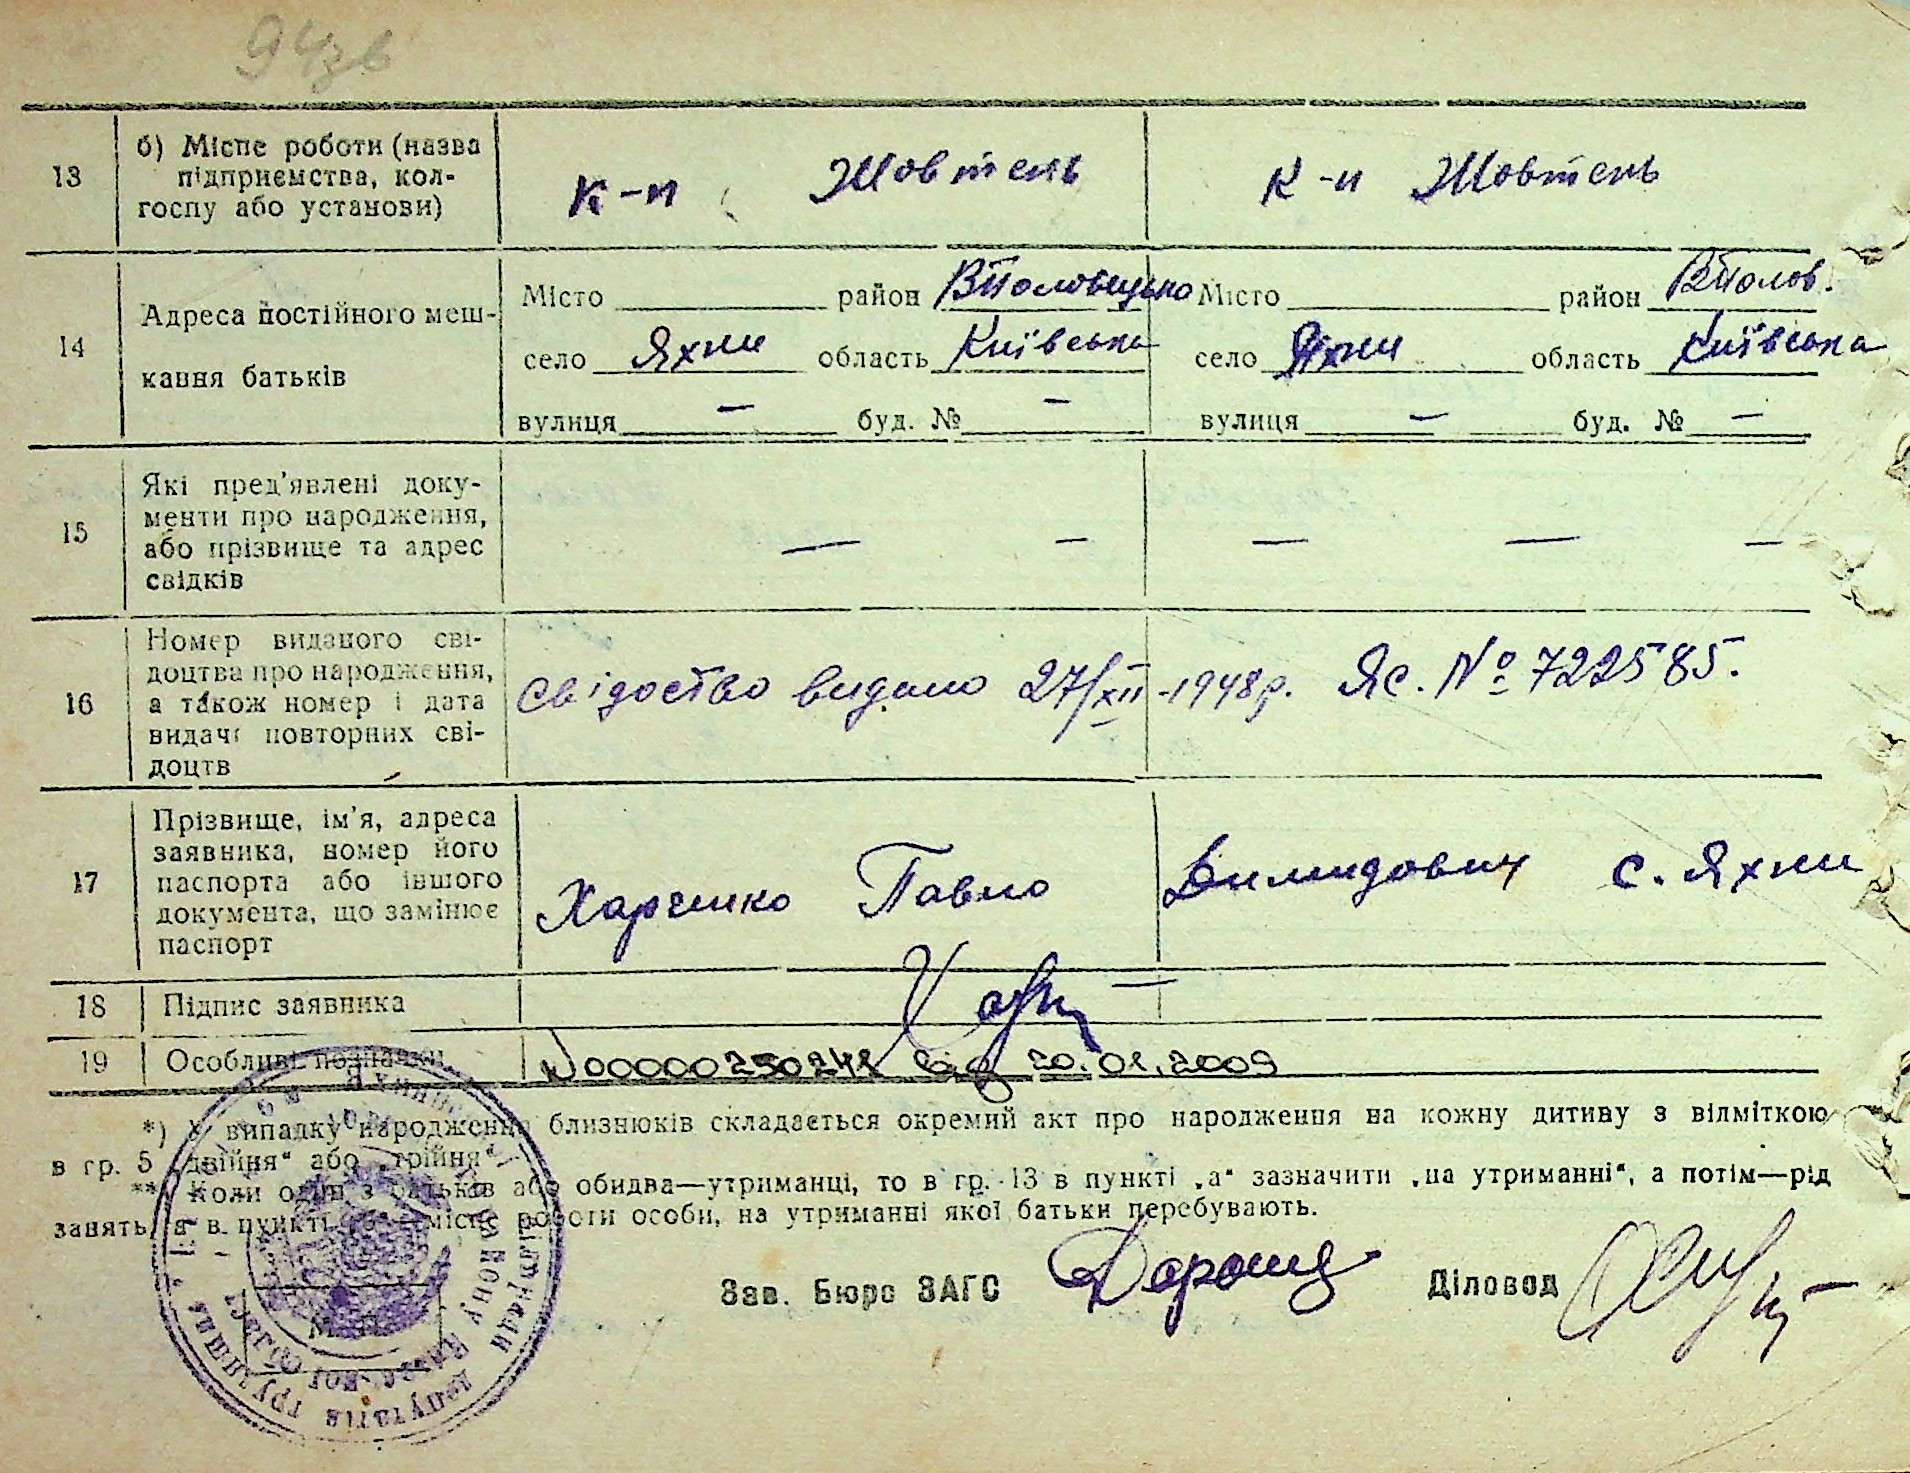 94зв
13
б) Місце роботи (назва
підприємства, кол-
госпу або установи)
к-п Жовтень
к-п Жовтень
14
Адреса постійного меш-
кання батьків
Місто район ВПоловецько
село Яхни область Київська
вулиця — буд. № —
Місто район ВПолов.
село Яхни область Київська
вулиця — буд. № —
15
Які пред'явлені доку-
менти про народження,
або прізвище та адрес
свідків
— — — — —
16
Номер виданого сві-
доцтва про народження,
а також номер і дата
видачі повторних сві-
доцтв
Свідоство видано 27/XII-1948р. Яс. № 722585.
17
Прізвище, ім'я, адреса
заявника, номер його
паспорта або іншого
документа, що замінює
паспорт
Харченко Павло Димидович с. Яхни
18
Підпис заявника
Хар
19
Особливі познавки
N00000250248 від 20.01.2009
*) У випадку народження близнюків складається окремий акт про народження на кожну дитину з відміткою
в гр. 5 „двійня“ або „трійня“.
** Коли один з батьків або обидва—утриманці, то в гр. 13 в пункті „а“ зазначити „на утриманні“, а потім—рід
занять, а в пункті „б“ місце роботи особи, на утриманні якої батьки перебувають.
Зав. Бюро ЗАГС Діловод
М. П.
депутатів трудящих